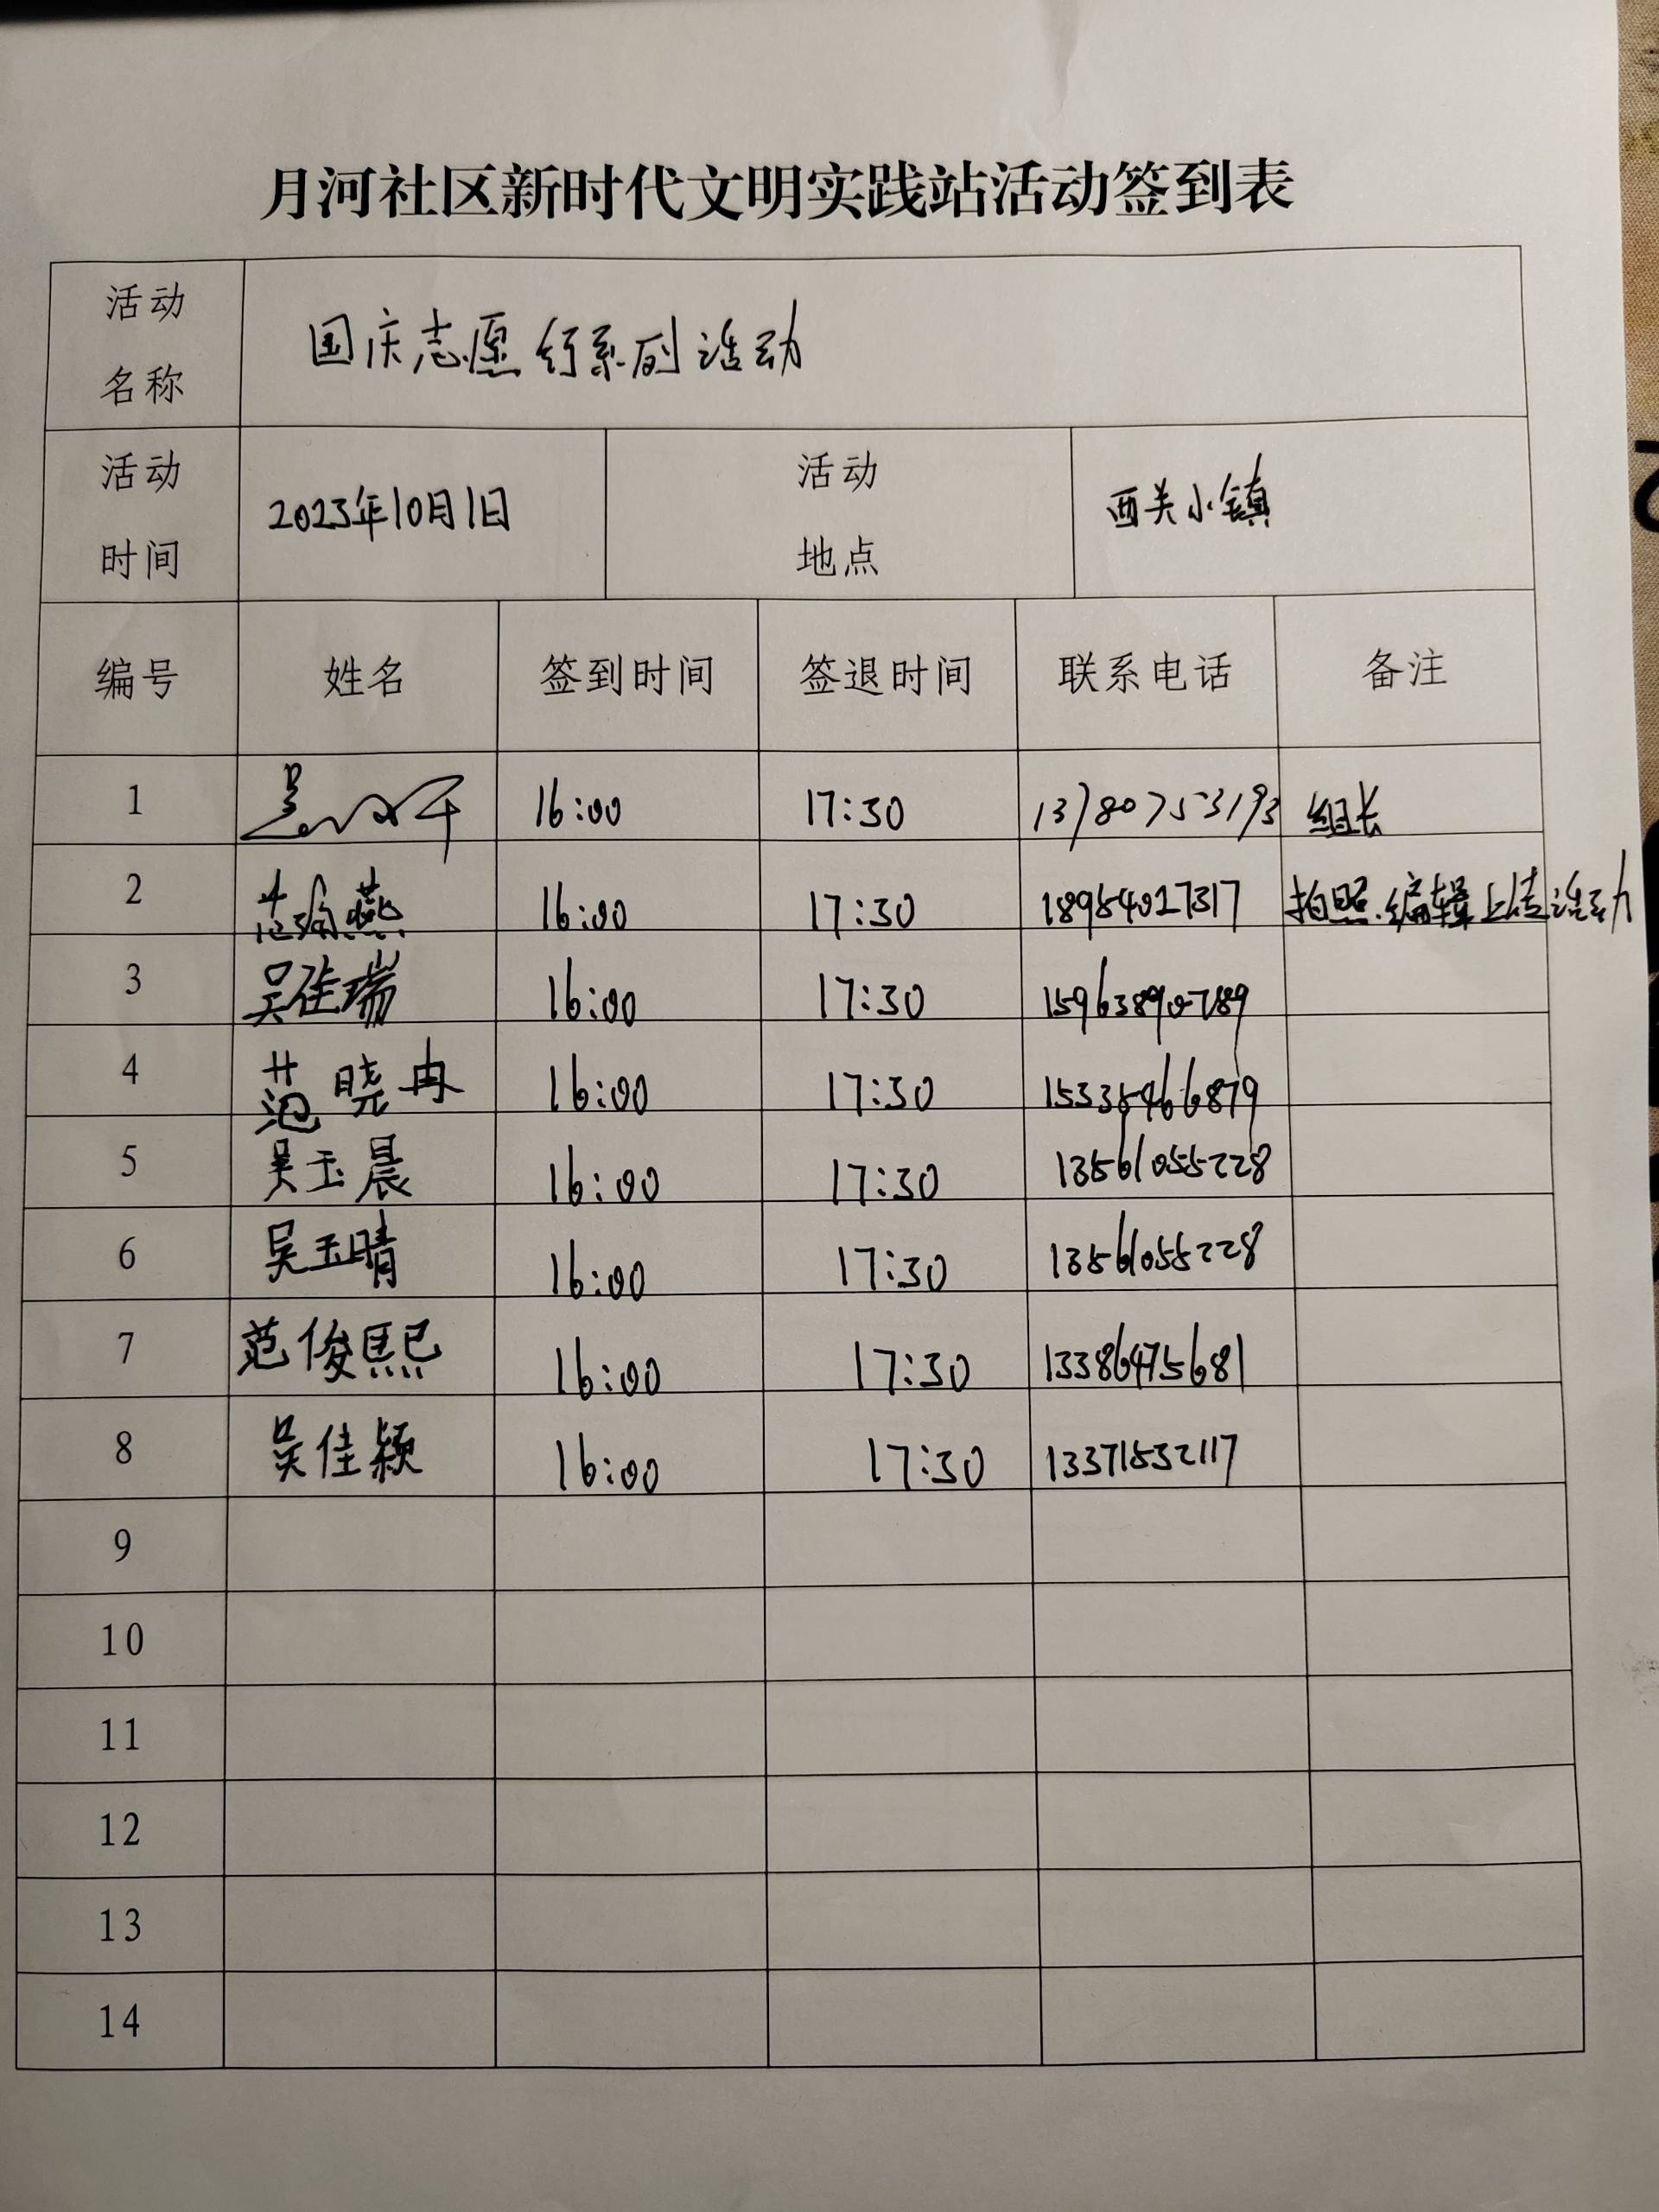 月河社区新时代文明实践站活动签到表
活动名称 国庆志愿行系列活动
活动时间 2023年10月1日 活动地点 西关小镇
编号 姓名 签到时间 签退时间 联系电话 备注
1 16:00 17:30 13780753193 组长
2 范瑜燕 16:00 17:30 18954027317 拍照.编辑上传活动
3 吴佳瑞 16:00 17:30 15963890789
4 范晓冉 16:00 17:30 15335466879
5 吴玉晨 16:00 17:30 13561055228
6 吴玉晴 16:00 17:30 13561055228
7 范俊熙 16:00 17:30 13386475681
8 吴佳颖 16:00 17:30 13371532117
9
10
11
12
13
14